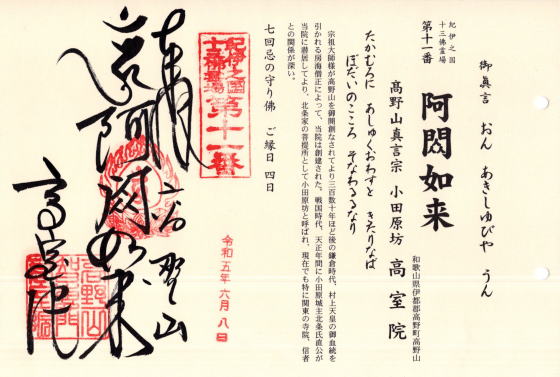 御眞言　おん　あきしゆびや　うん
紀伊之国
十三佛霊場
第十一番
阿閦如来
和歌山県伊都郡高野町高野山
高野山真言宗　小田原坊　高室院
たかむろに　あしゅくおわすと　きたりなば
ぼだいのこころ　そなわるなり
宗祖大師様が高野山を御開創なされてより三百数十年ほど後の鎌倉時代、村上天皇の御血統を
引かれる房海僧正によって、当院は創建された。戦国時代、天正年間に小田原城主北条氏直公が
当院に潜居してより、北条家の菩提所として小田原坊と呼ばれ、現在でも特に関東の寺院、信者
との関係が深い。
七回忌の守り佛　ご縁日　四日
紀伊之国
十三佛霊場
第十一番
令和五年六月八日
奉拝
高野山
阿閦如来
高室院